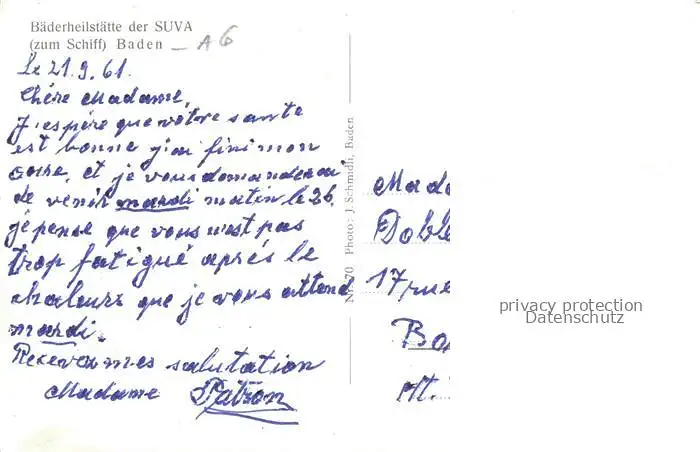 Bäderheilstätte der SUVA
(zum Schiff) Baden – A6
Le 21.9.61.
Chére Madame,
J'espére que vôtre sante
est bonne j'ai fini mon
et je vous
de venir mardi matin le 26.
je pense que vous n'est pas
trop fatigué aprés le
chaleurs que je vous attend
mardi.
Recevez mes salutation
Madame Patron
Nr. 70 Photo: J. Schmidli, Baden
Mada
Doble
17, rue
Ba
Mt.
privacy protection
Datenschutz